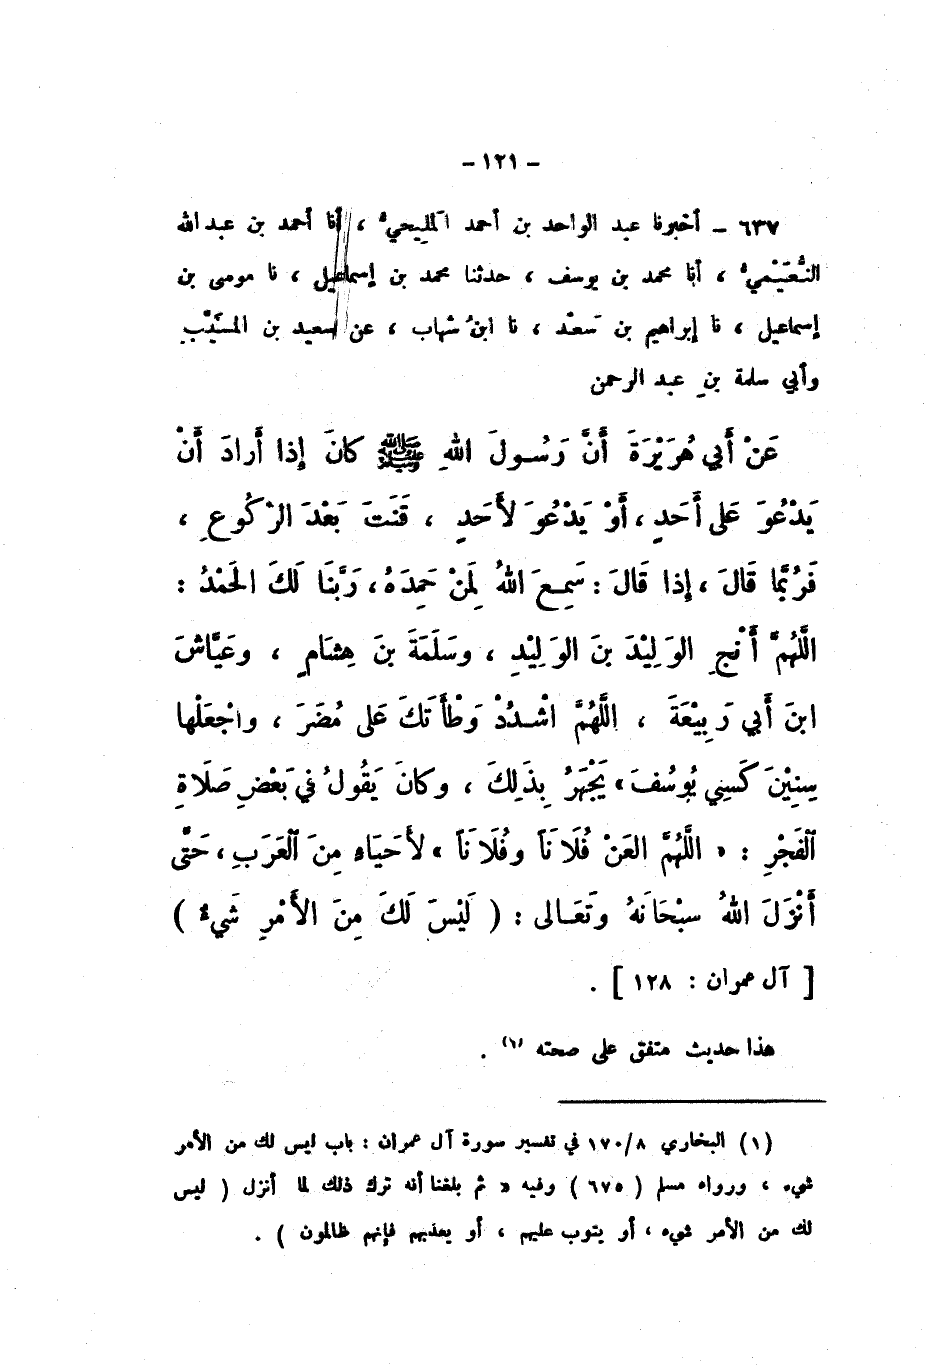 – ١٢١ –
٦٣٧ – أخبرنا عبد الواحد بن أحمد المليحيُّ ، أنا أحمد بن عبد الله
النُّعَيْميُّ ، أنا محمد بن يوسف ، حدثنا محمد بن إسماعيل ، نا موسى بن
إسماعيل ، نا إبراهيم بن سَعْد ، نا ابنُ شهاب ، عن سعيد بن المسَيَّبِ
وأبي سلمة بنِ عبد الرحمن
عَنْ أَبي هُرَيْرَةَ أَنَّ رَسُولَ اللهِ ﷺ كانَ إذا أَرادَ أَنْ
يَدْعُوَ عَلى أَحَدٍ ، أَوْ يَدْعُوَ لأَحَدٍ ، قَنَتَ بَعْدَ الرُّكُوعِ ،
فَرُبَّما قَالَ ، إذا قَالَ : سَمِعَ اللهُ لِمَنْ حَمِدَهُ ، رَبَّنَا لَكَ الحَمْدُ :
اللَّهُمَّ أَنْجِ الوَلِيْدَ بنَ الوَلِيْدِ ، وسَلَمَةَ بنَ هِشَامٍ ، وعَيَّاشَ
ابنَ أَبي رَبِيْعَةَ ، اللَّهُمَّ اشْدُدْ وَطْأَتَكَ عَلى مُضَرَ ، واجْعَلْها
سِنِيْنَ كَسِنِي يُوسُفَ » يَجْهَرُ بِذَلِكَ ، وكانَ يَقُولُ في بَعْضِ صَلَاةِ
الفَجْرِ : « اللَّهُمَّ العَنْ فُلَاناً وفُلَاناً » لأَحيَاءٍ مِنَ العَرَبِ ، حَتَّى
أَنْزَلَ اللهُ سبْحَانَهُ وتَعَالى : ( لَيْسَ لَكَ مِنَ الأَمْرِ شَيءٌ )
[ آل عمران : ١٢٨ ] .
هذا حديث متفق على صحته (١) .
(١) البخاري ١٧٠/٨ في تفسير سورة آل عمران : باب ليس لك من الأمر
شيء ، ورواه مسلم ( ٦٧٥ ) وفيه « ثم بلغنا أنه ترك ذلك لما أنزل ( ليس
لك من الأمر شيء ، أو يتوب عليهم ، أو يعذبهم فإنهم ظالمون ) .